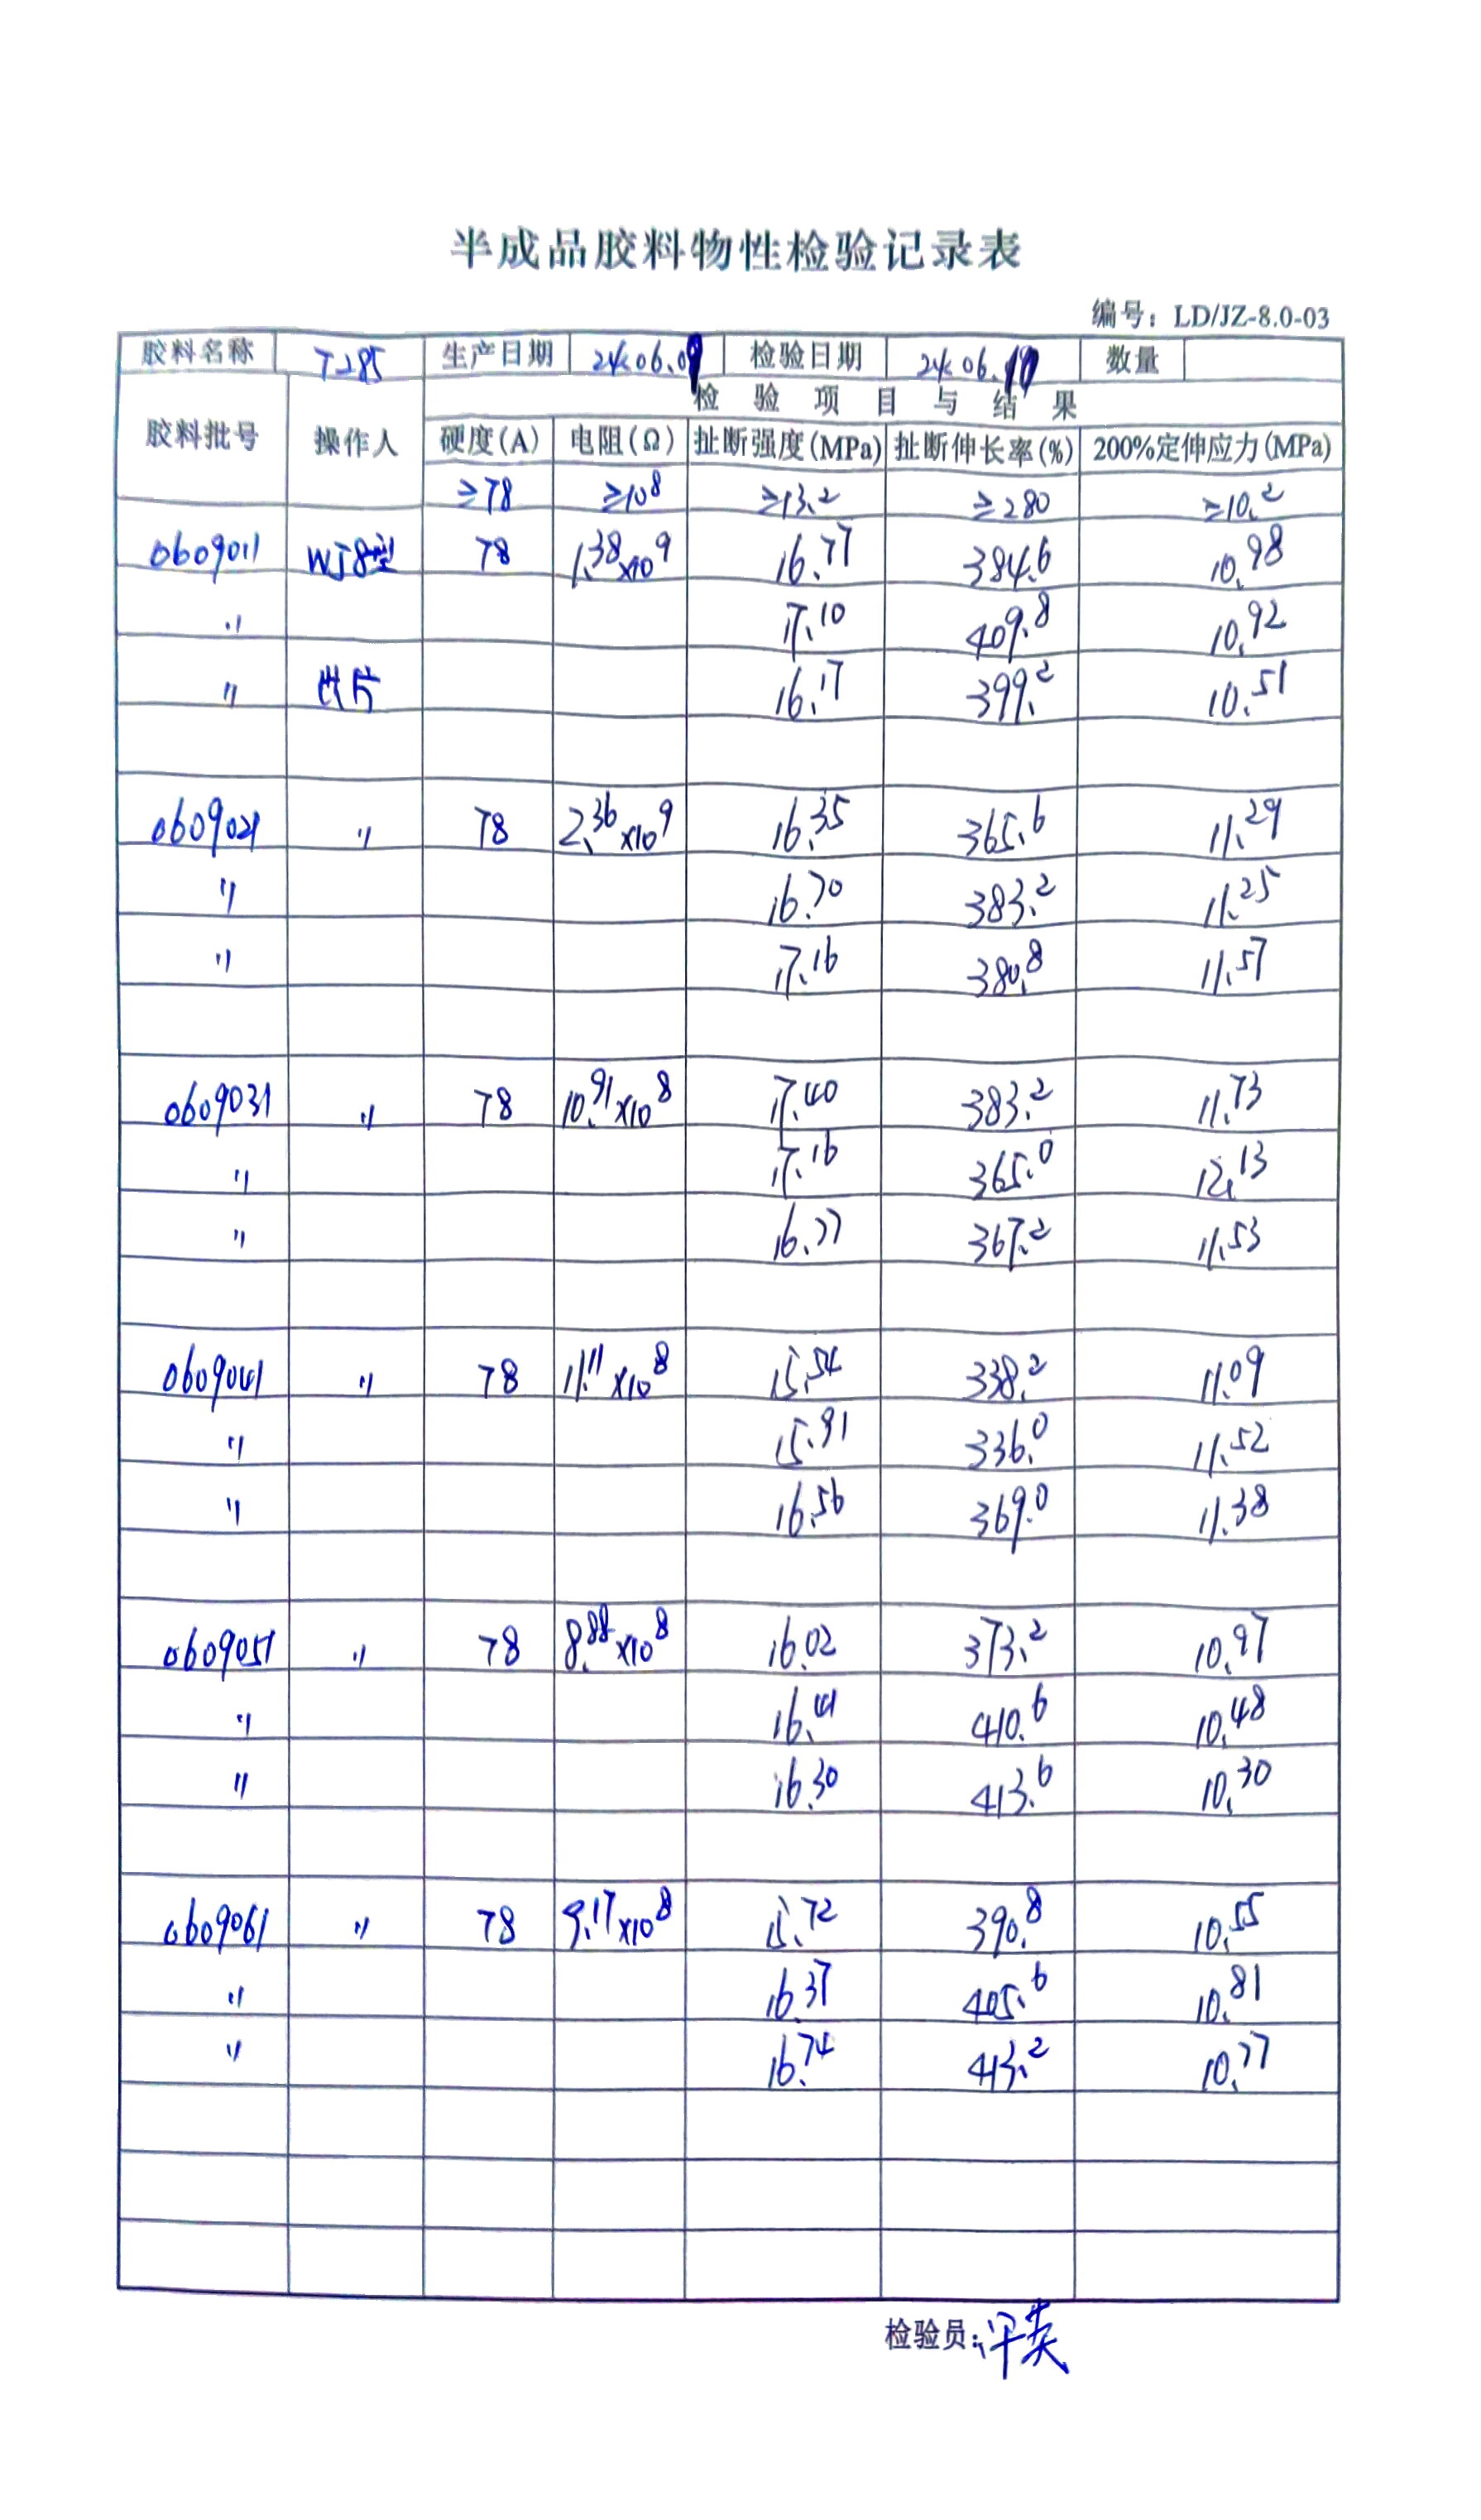 半成品胶料物性检验记录表
编号：LD/JZ-8.0-03
胶料名称 T285 生产日期 24.06.09 检验日期 24.06. 数量
检验项目与结果
胶料批号 操作人 硬度(A) 电阻(Ω) 扯断强度(MPa) 扯断伸长率(%) 200%定伸应力(MPa)
≥78 ≥10⁸ ≥13.2 ≥280 ≥10.2
0609011 WJ8型 78 1.38×10⁹ 16.77 384.6 10.98
〃 17.10 409.8 10.92
〃 片 16.17 399.2 10.51
0609021 〃 78 2.36×10⁹ 16.35 365.6 11.29
〃 16.70 383.2 11.25
〃 17.16 380.8 11.57
0609031 〃 78 10.91×10⁸ 17.40 383.2 11.73
〃 17.16 365.0 12.13
〃 16.77 367.2 11.53
0609041 〃 78 11.11×10⁸ 15.54 338.2 11.09
〃 15.91 336.0 11.52
〃 16.56 369.0 11.38
0609051 〃 78 8.88×10⁸ 16.02 373.2 10.97
〃 16.41 410.6 10.48
〃 16.30 413.6 10.30
0609061 〃 78 9.17×10⁸ 15.72 390.8 10.55
〃 16.37 405.6 10.81
〃 16.74 413.2 10.77
检验员：